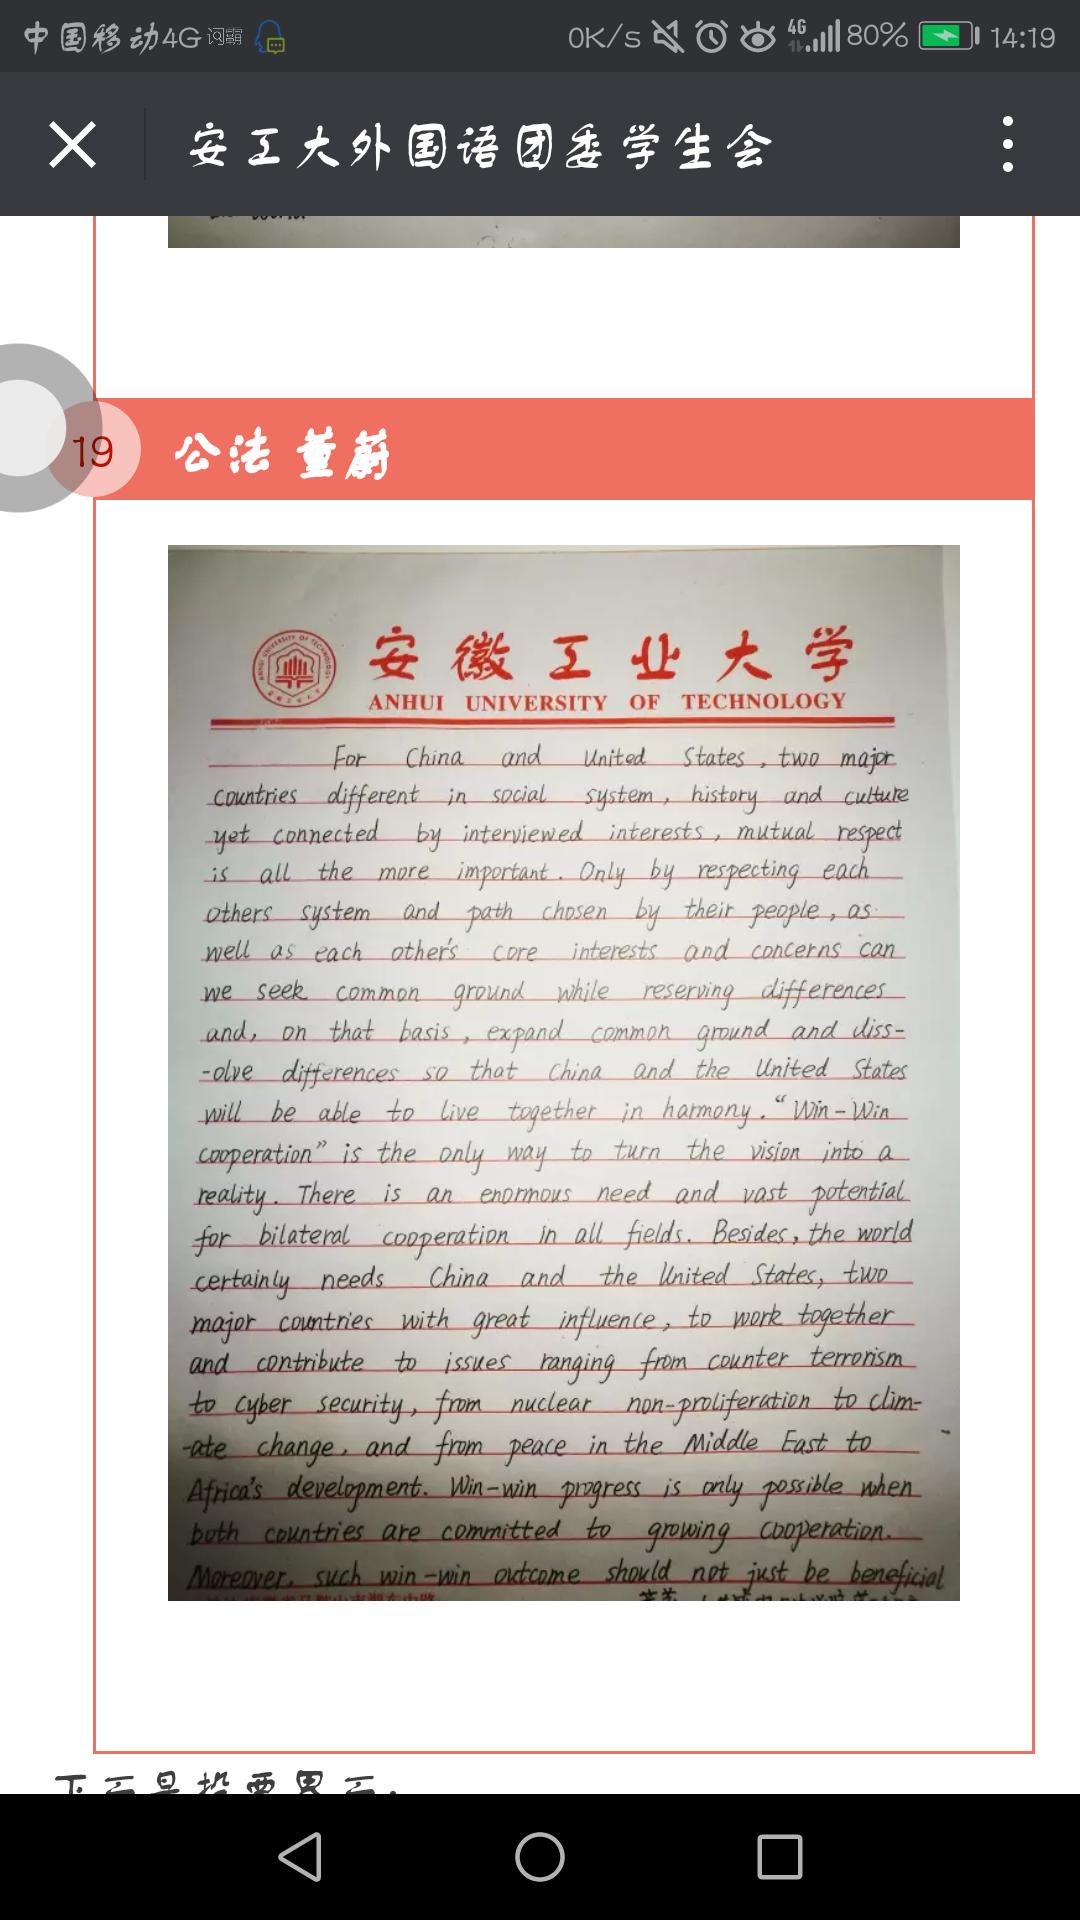 中国移动4G
0K/s 4G 80% 14:19
安工大外国语团委学生会
19 公法 董蔚
安徽工业大学
ANHUI UNIVERSITY OF TECHNOLOGY
For China and United States, two major
countries different in social system, history and culture
yet connected by interviewed interests, mutual respect
is all the more important. Only by respecting each
others system and path chosen by their people, as
well as each other's core interests and concerns can
we seek common ground while reserving differences
and, on that basis, expand common ground and diss-
-olve differences so that China and the United States
will be able to live together in harmony. “Win-Win
cooperation” is the only way to turn the vision into a
reality. There is an enormous need and vast potential
for bilateral cooperation in all fields. Besides, the world
certainly needs China and the United States, two
major countries with great influence, to work together
and contribute to issues ranging from counter terrorism
to cyber security, from nuclear non-proliferation to clim-
-ate change, and from peace in the Middle East to
Africa's development. Win-win progress is only possible when
both countries are committed to growing cooperation.
Moreover, such win-win outcome should not just be beneficial
下面是投票界面: